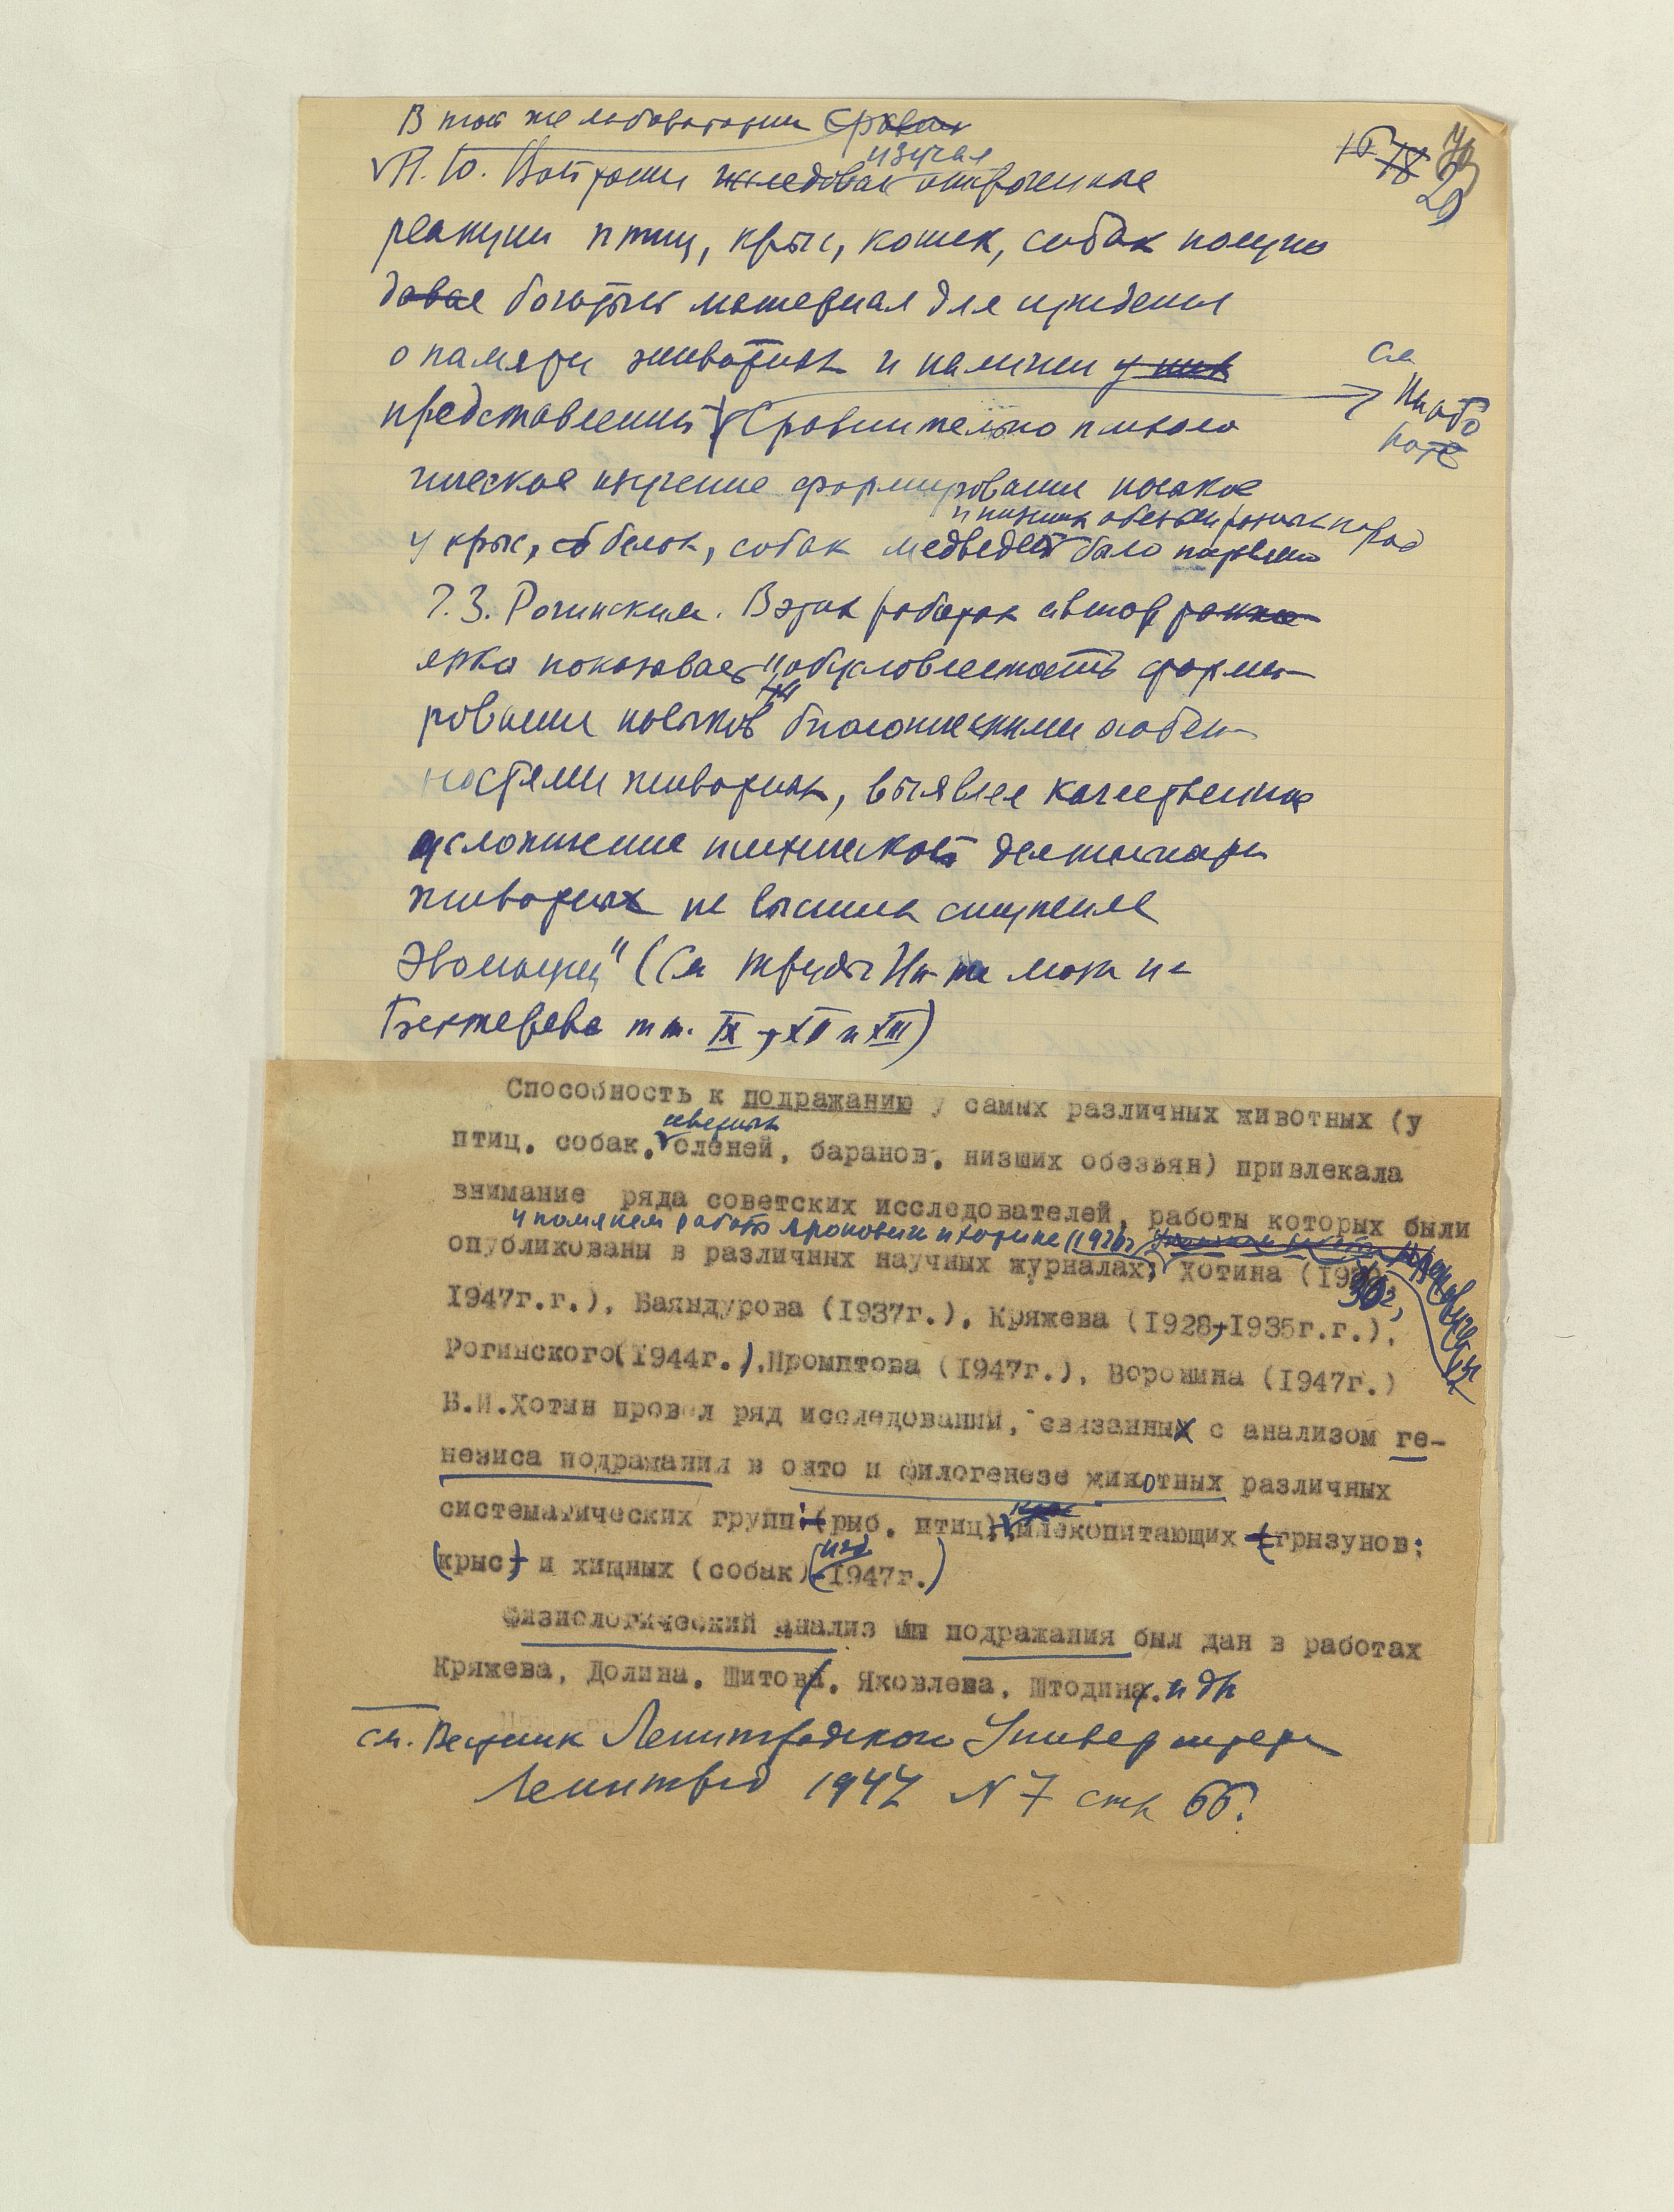 В той же лаборатории сравн
16 18 70
20
изучая
Л. Ю. Войтонис исследовал отсроченные
реакции птиц, крыс, кошек, собак получи
давая богатый материал для суждения
о памяти животных и наличии у них
см
на обо
роте
представлений. Сравнительно психоло
гическое изучение формирования навыков
и низших обезьян разных пород
у крыс, белок, собак медведей было проведено
Г. З. Рогинским. В этих работах автор
ярко показывает "обусловленность форми-
рования навыков биологическими особен-
ностями животных, выявляя качественное
усложнение психической деятельности
животных на высших ступенях
эволюции" (См труды Ин-та мозга им
Бехтерева тт. IX, XII и XIII)
Способность к подражанию у самых различных животных (у
северных
птиц, собак, оленей, баранов, низших обезьян) привлекала
внимание ряда советских исследователей, работы которых были
упомянем работы и Хотина (1926г
опубликованы в различных научных журналах; Хотина (19
30г,
1947г.г.), Баяндурова (1937г.), Кряжева (1928,1935г.г.),
Рогинского(1944г.),Промптова (1947г.), Воронина (1947г.)
Б.И.Хотин провел ряд исследований, связанных с анализом ге-
незиса подражания в онто и филогенезе животных различных
систематических групп:(рыб, птиц), млекопитающих (грызунов:
изд
(крыс) и хищных (собак)(1947г.)
Физиологический анализ подражания был дан в работах
Кряжева, Долина, Шитова, Яковлева, Штодина. и др
см. Вестник Ленинградского Университета
Ленинград 1947 N 7 стр 66.